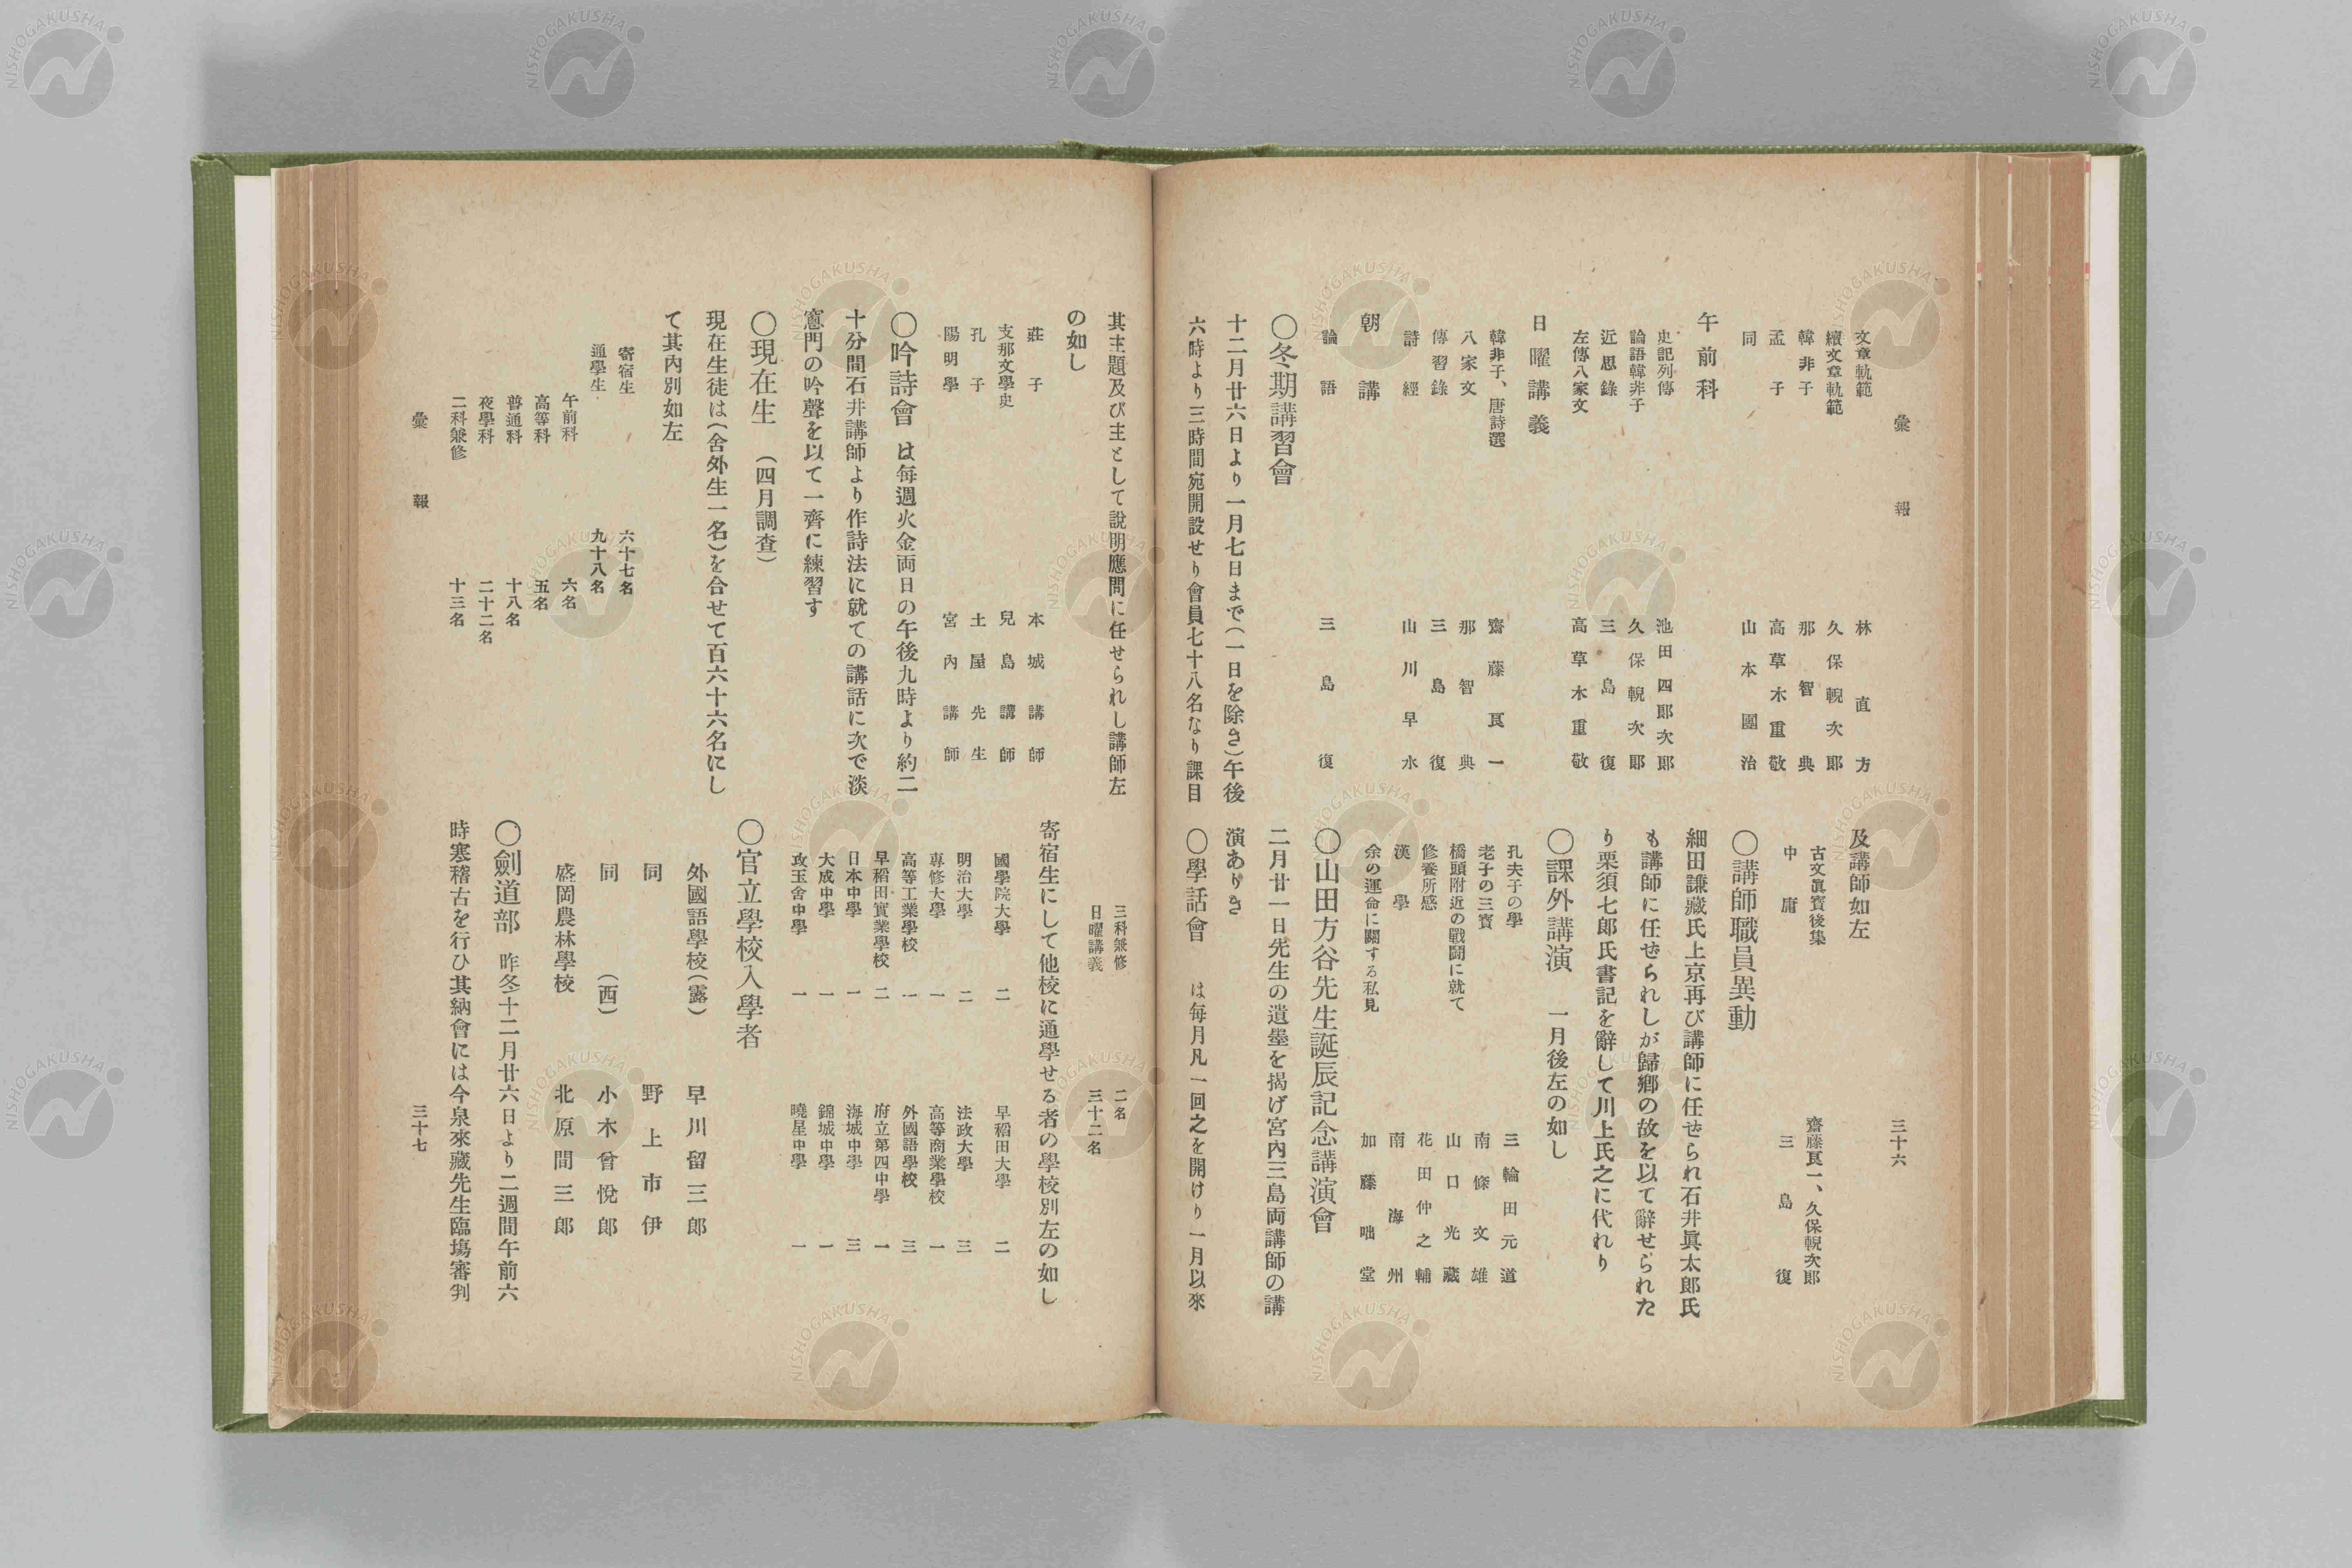 彙報
三十六
文章軌範 林直方
續文章軌範 久保輗次郎
韓非子 那智典
孟子 高草木重敬
同 山本團治
午前科
史記列傳 池田四郎次郎
論語韓非子 久保輗次郎
近思錄 三島復
左傳八家文 高草木重敬
日曜講義
韓非子、唐詩選 齋藤良一
八家文 那智典
傳習錄 三島復
詩經 山川早水
朝講
論語 三島復
〇冬期講習會
十二月廿六日より一月七日まで(一日を除き)午後
六時より三時間宛開設せり會員七十八名なり課目
及講師如左
古文眞寶後集 齋藤良一、久保輗次郎
中庸 三島復
〇講師職員異動
細田謙藏氏上京再び講師に任せられ石井眞太郎氏
も講師に任せられしが歸鄉の故を以て辭せられた
り栗須七郎氏書記を辭して川上氏之に代れり
〇課外講演 一月後左の如し
孔夫子の學 三輪田元道
老子の三寶 南條文雄
橋頭附近の戰鬪に就て 山口光藏
修養所感 花田仲之輔
漢學 南海州
余の運命に關する私見 加藤咄堂
〇山田方谷先生誕辰記念講演會
二月廿一日先生の遺墨を揭げ宮內三島両講師の講
演ありき
〇學話會 は每月凡一回之を開けり一月以來
其主題及び主として說明應問に任せられし講師左
の如し
莊子 本城講師
支那文學史 兒島講師
孔子 土屋先生
陽明學 宮內講師
〇吟詩會 は每週火金両日の午後九時より約二
十分間石井講師より作詩法に就ての講話に次で淡
窻門の吟聲を以て一齊に練習す
〇現在生 (四月調査)
現在生徒は(舍外生一名)を合せて百六十六名にし
て其內別如左
寄宿生 六十七名
通學生 九十八名
午前科 六名
高等科 五名
普通科 十八名
夜學科 二十二名
二科兼修 十三名
三科兼修 二名
日曜講義 三十二名
寄宿生にして他校に通學せる者の學校別左の如し
國學院大學 二 早稻田大學 二
明治大學 二 法政大學 三
專修大學 一 高等商業學校 一
高等工業學校 一 外國語學校 三
早稻田實業學校 二 府立第四中學 一
日本中學 一 海城中學 三
大成中學 一 錦城中學 一
攻玉舍中學 一 曉星中學 一
〇官立學校入學者
外國語學校(露) 早川留三郎
同 野上市伊
同 (西) 小木曾悅郎
盛岡農林學校 北原間三郎
〇劍道部 昨冬十二月廿六日より二週間午前六
時寒稽古を行ひ其納會には今泉來藏先生臨塲審判
彙報
三十七